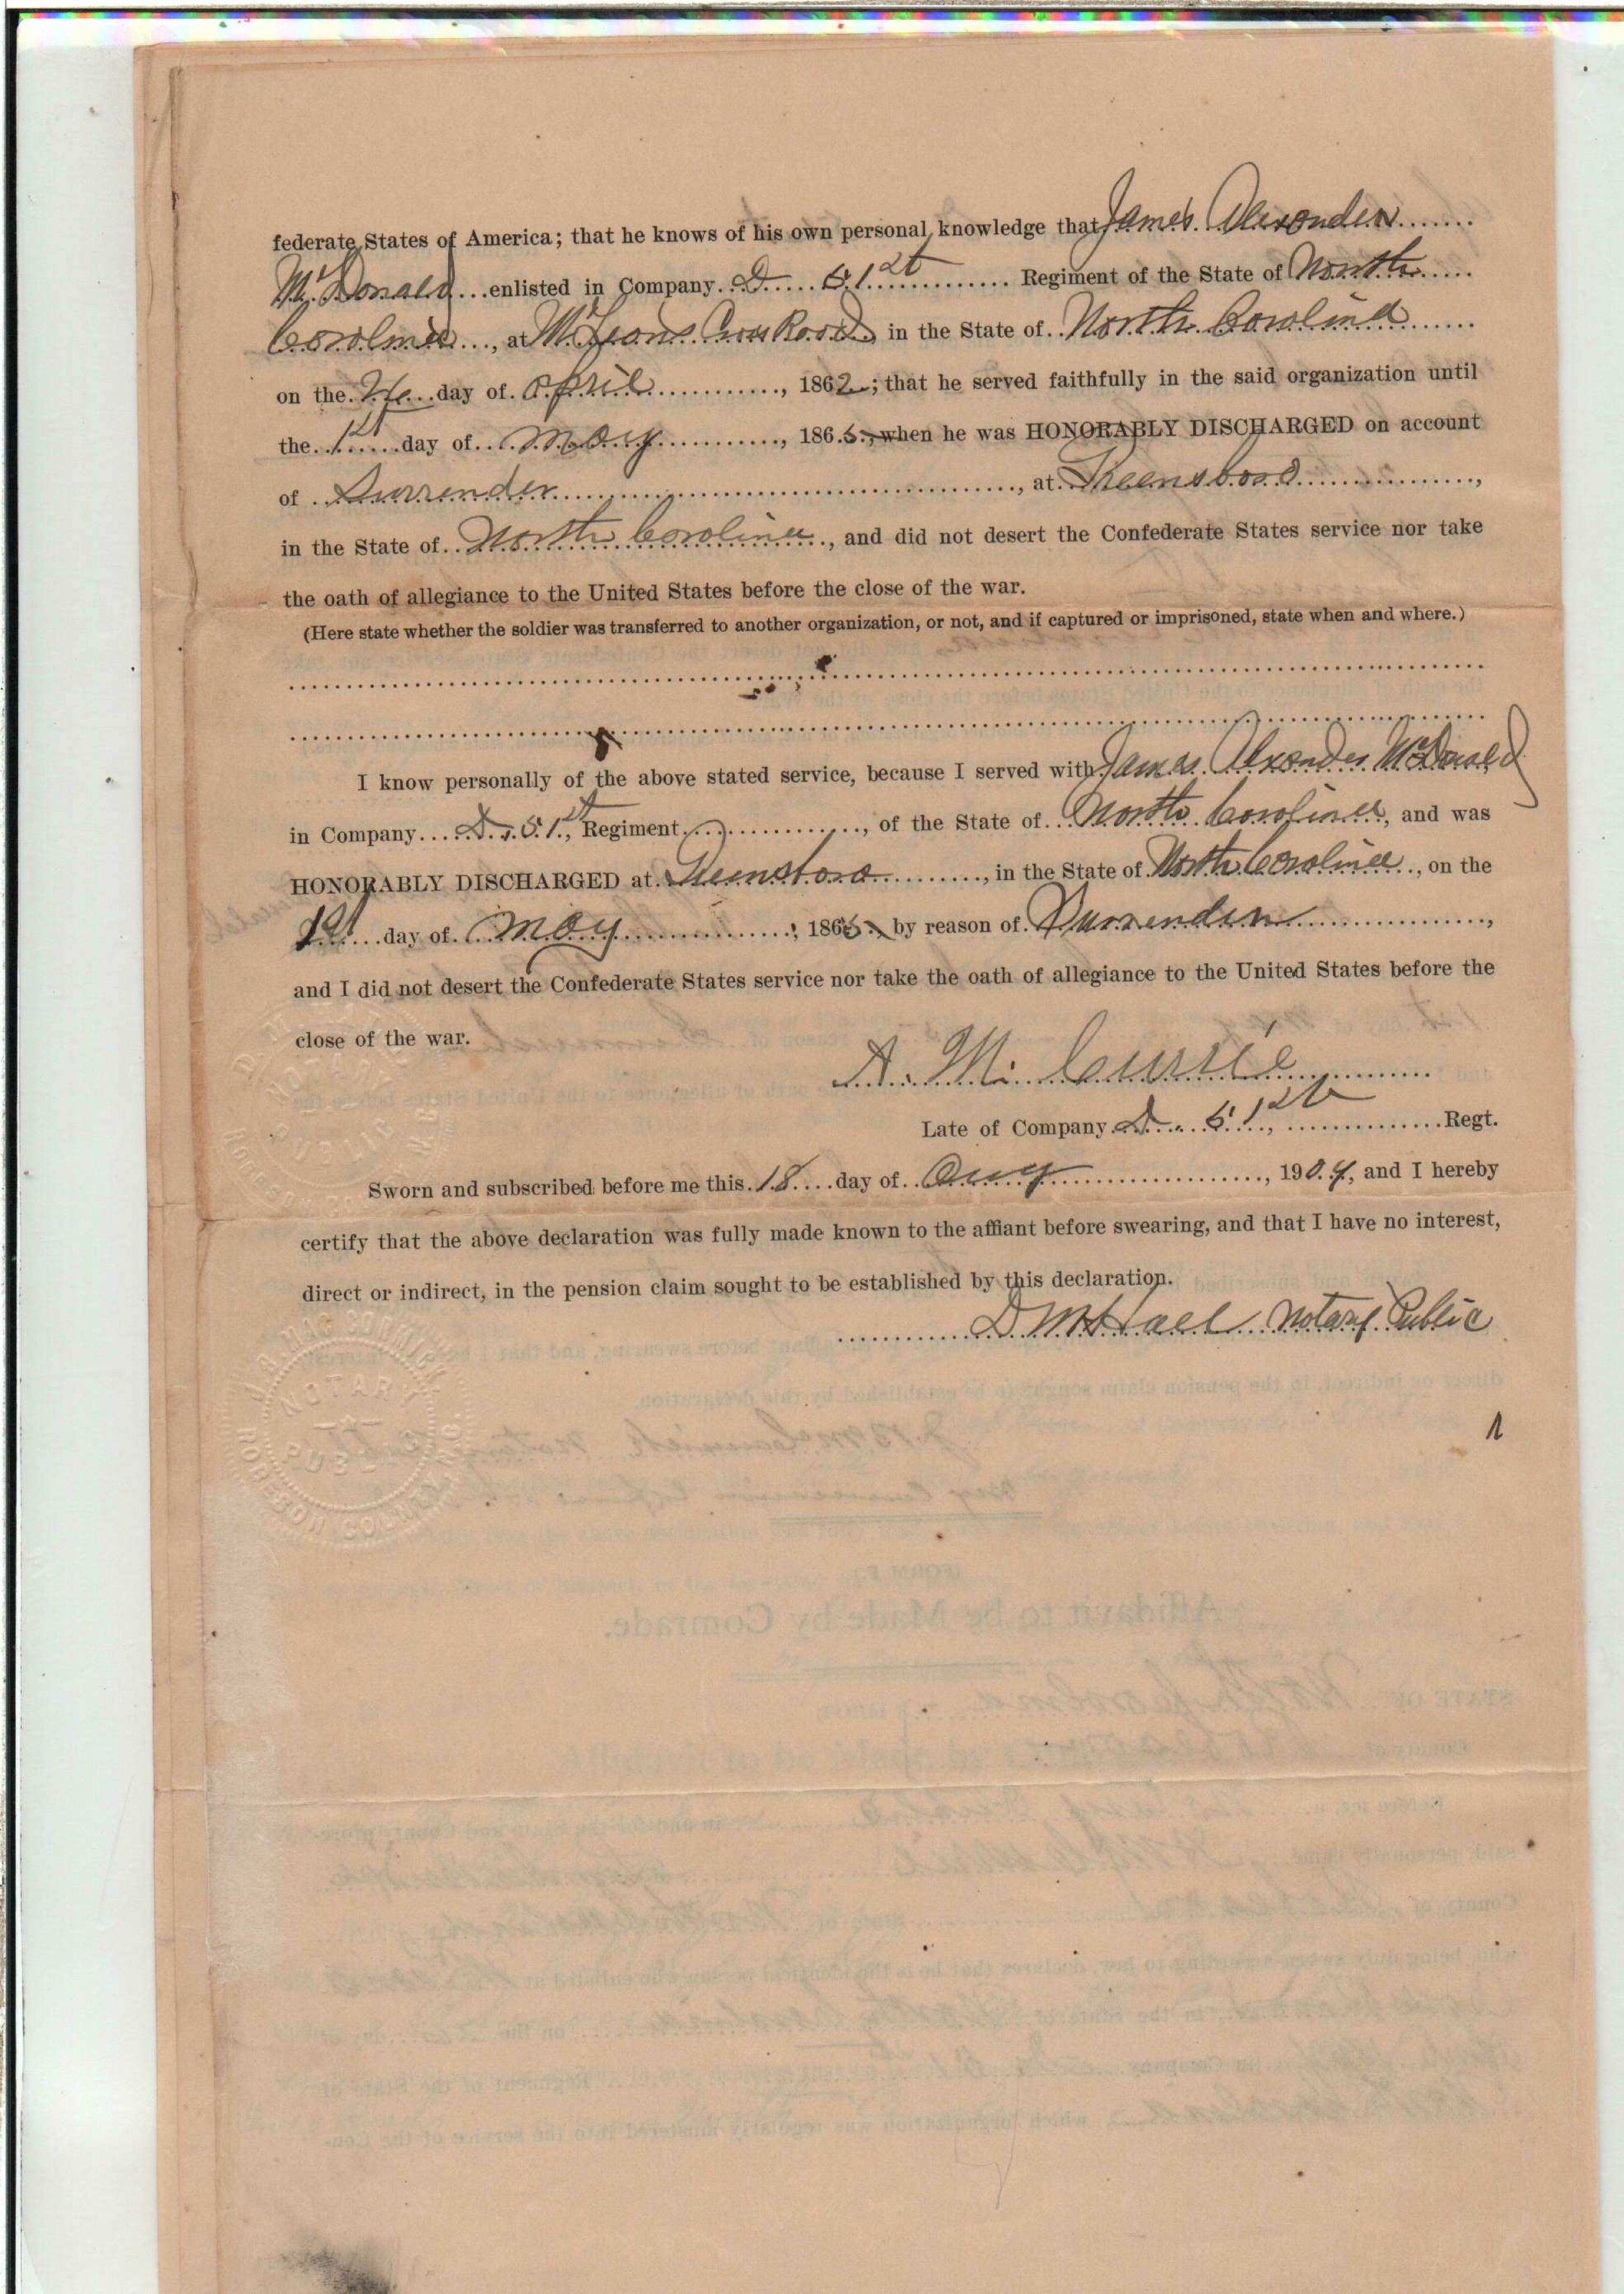 federate States of America; that he knows of his own personal knowledge that James Alexander
McDonald enlisted in Company D 51st Regiment of the State of North
Carolina, at Cross Roads in the State of North Carolina
on the day of April, 1862; that he served faithfully in the said organization until
the 1st day of May, 1865, when he was HONORABLY DISCHARGED on account
of Surrender, at Greensboro,
in the State of North Carolina, and did not desert the Confederate States service nor take
the oath of allegiance to the United States before the close of the war.
(Here state whether the soldier was transferred to another organization, or not, and if captured or imprisoned, state when and where.)
I know personally of the above stated service, because I served with James Alxander McDonald
in Company D, 51st, Regiment, of the State of North Carolina, and was
HONORABLY DISCHARGED at Greensboro, in the State of North Carolina, on the
1st day of May, 1865, by reason of Surrender,
and I did not desert the Confederate States service nor take the oath of allegiance to the United States before the
close of the war.
A. M. Currie
Late of Company D. 51st, Regt.
Sworn and subscribed before me this 18 day of Aug, 190, and I hereby
certify that the above declaration was fully made known to the affiant before swearing, and that I have no interest,
direct or indirect, in the pension claim sought to be established by this declaration.
D M Hall Notary Public
NOTARY
PUBLIC
ROBESON COUNTY N.C.